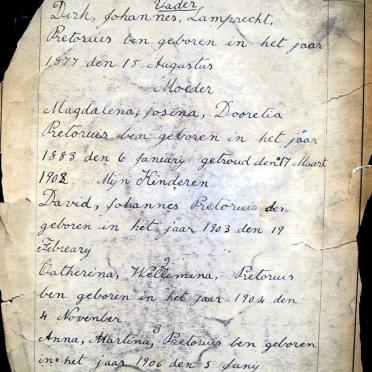 Vader
Dirk, Johannes, Lamprecht,
Pretorius ben geboren in het jaar
1877 den 15 Augustus
Moeder
Magdalena, Josina, Dooretia
Pretorius ben geboren in het jaar
1883 den 6 January getroud den 17 Maart
1902 Mijn Kinderen
David, Johannes Pretorius den
geboren in het jaar 1903 den 19
Febreary
2
Catherina, Willemina, Pretorius
ben geboren in het jaar 1904 den
4 November
3
Anna, Martina, Pretorius ben geboren
in het jaar 1906 den 5 Juny